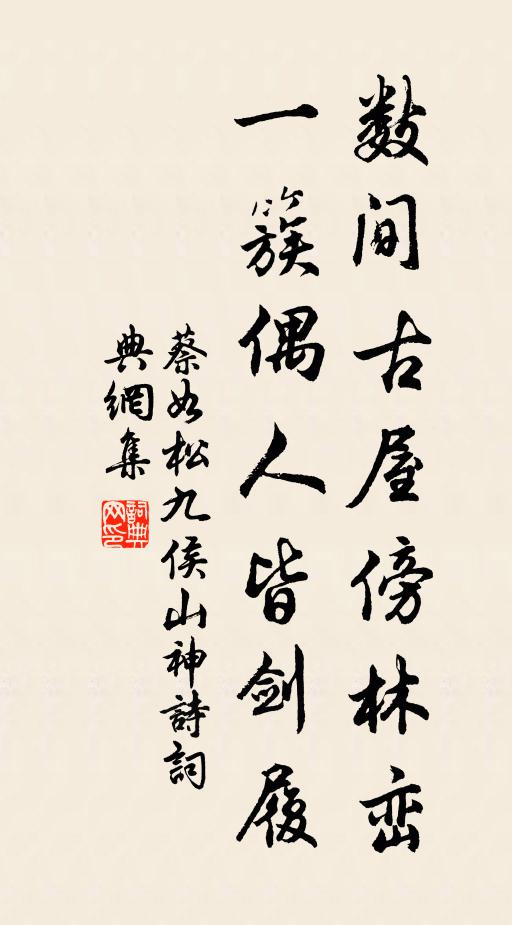 数间古屋傍林峦
一簇偶人皆剑履
蔡如松九侯山神詩詞
典網集
詞典
网印